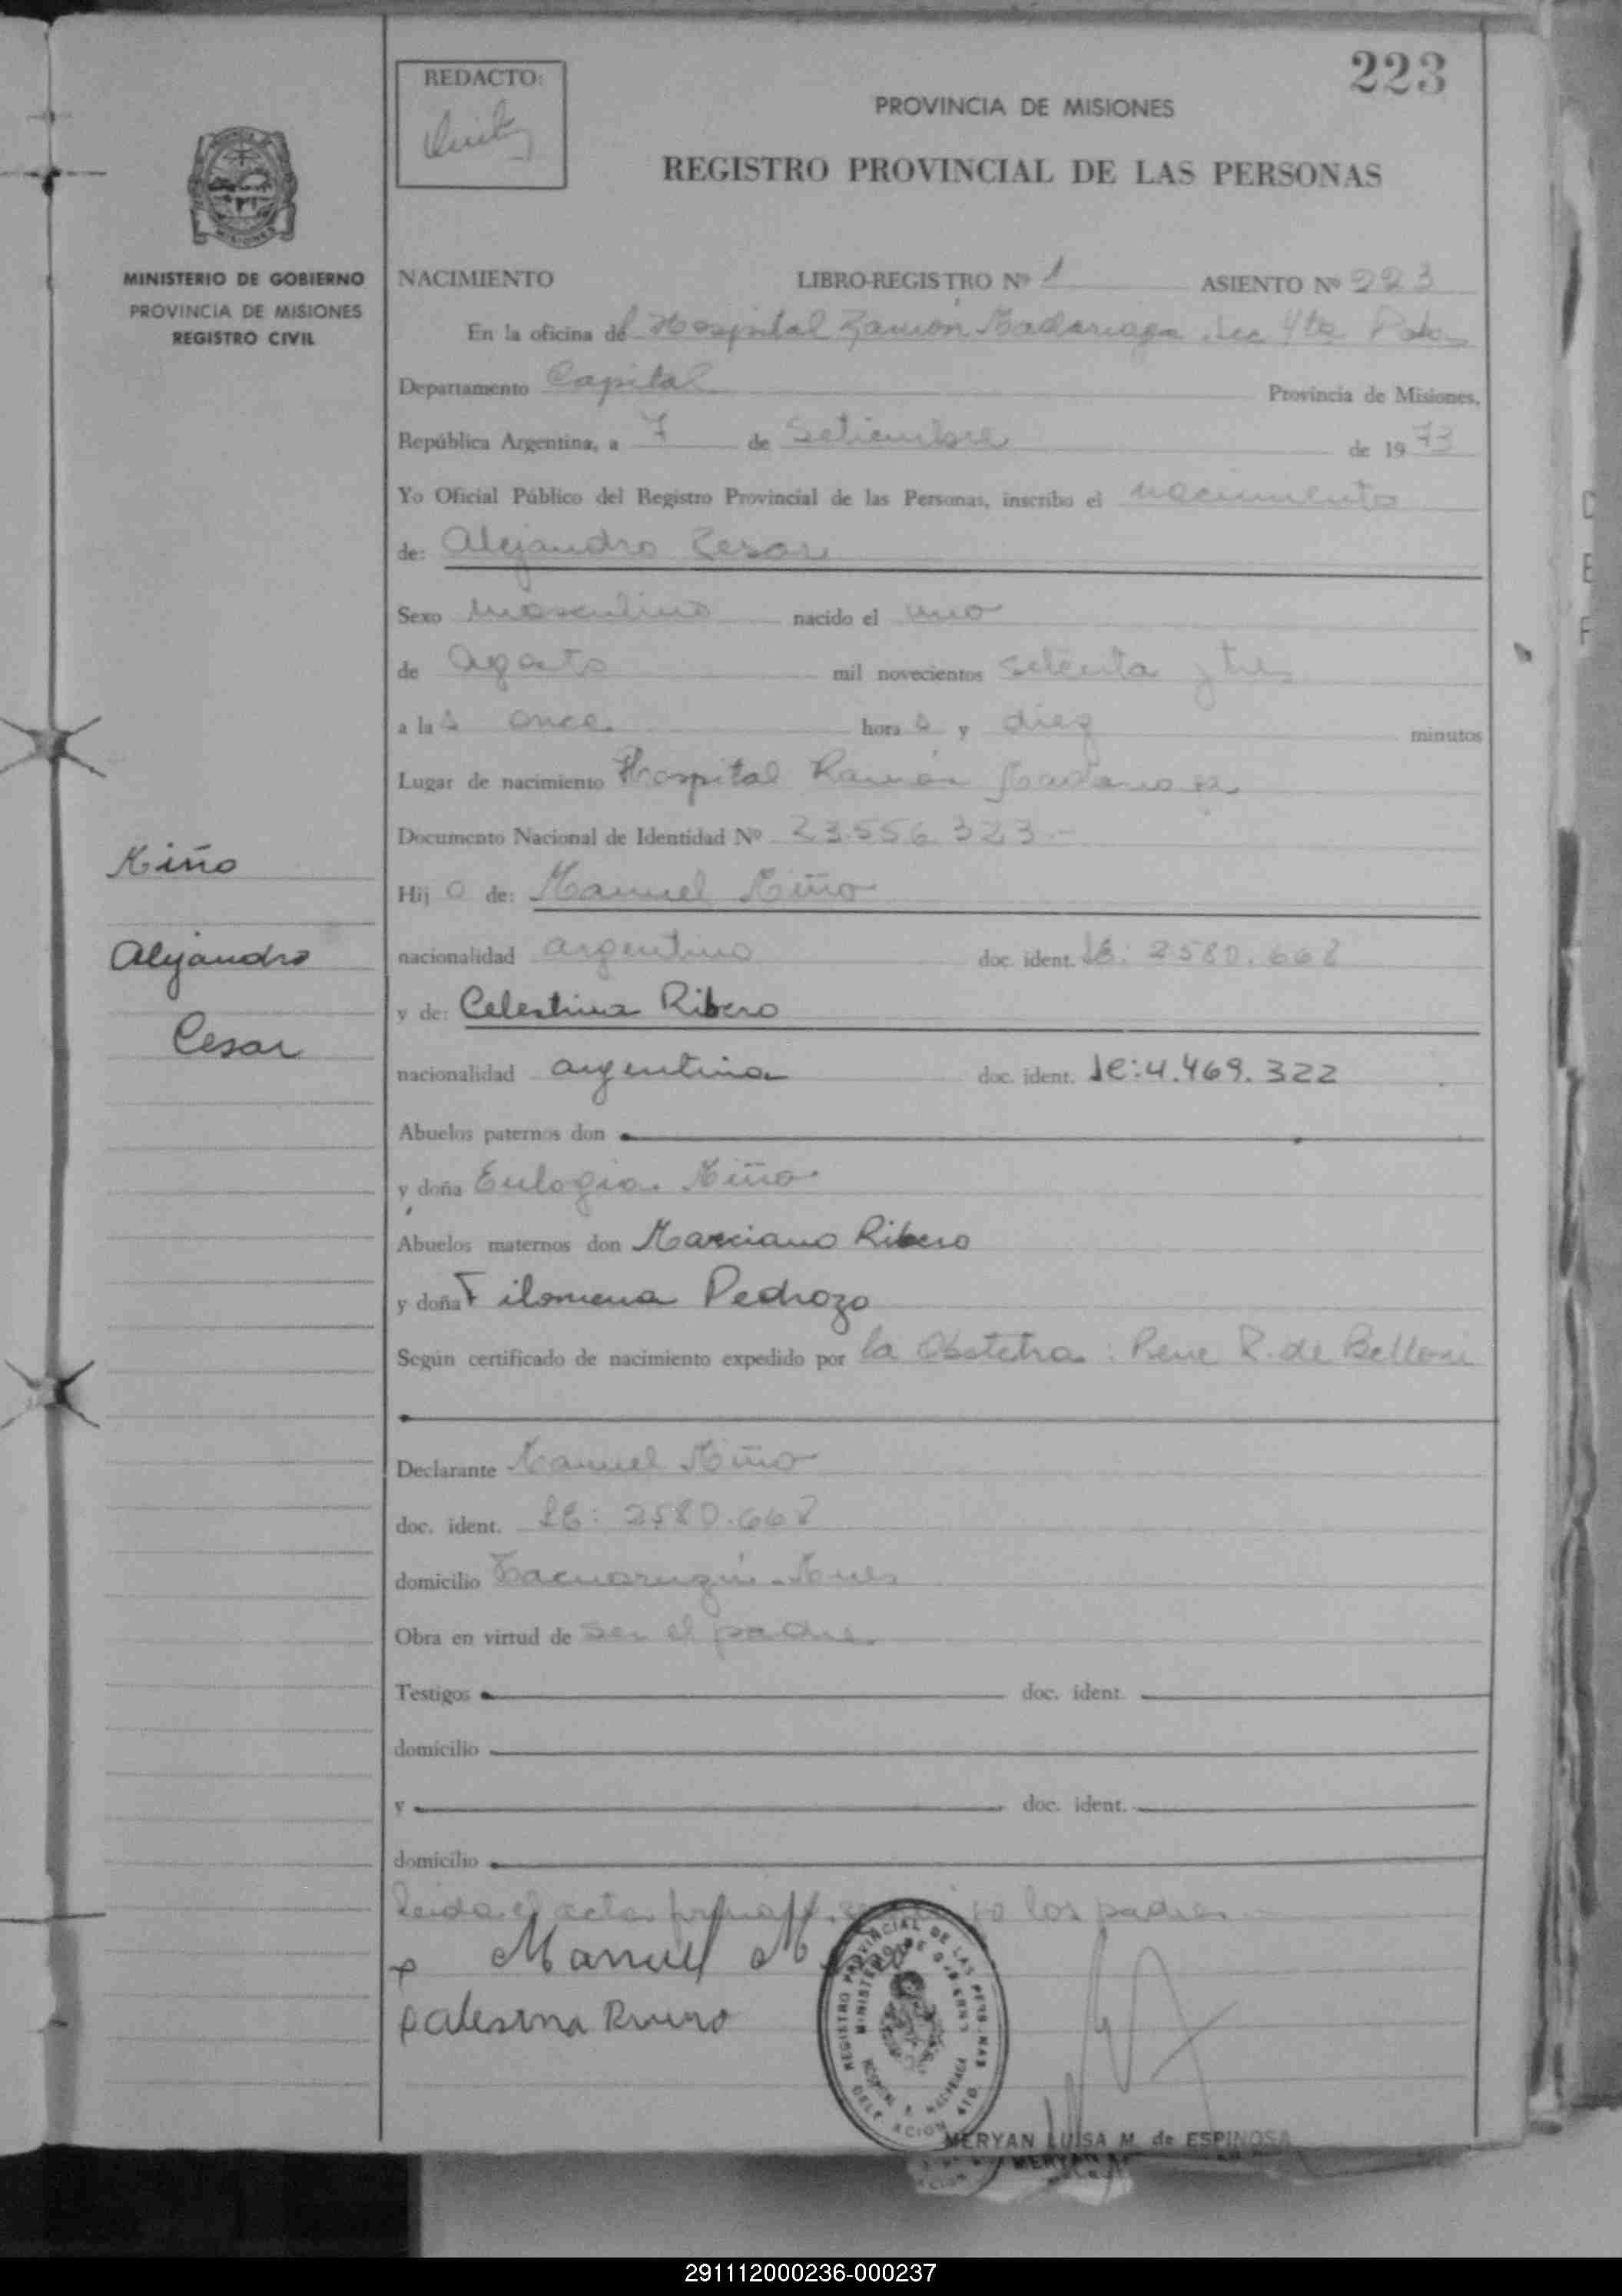 223
REDACTO:
PROVINCIA DE MISIONES
REGISTRO PROVINCIAL DE LAS PERSONAS
MISIONES
MINISTERIO DE GOBIERNO
PROVINCIA DE MISIONES
REGISTRO CIVIL
NACIMIENTO LIBRO-REGISTRO Nº 1 ASIENTO Nº 223
En la oficina del Hospital Ramón Madariaga Sec 4ta Pdas
Departamento Capital Provincia de Misiones,
República Argentina, a 7 de Setiembre de 1973
Yo Oficial Público del Registro Provincial de las Personas, inscribo el nacimiento
de: Alejandro Cesar
Sexo masculino nacido el uno
de agosto mil novecientos setenta y tres
a las once horas y diez minutos
Lugar de nacimiento Hospital Ramón Madariaga
Documento Nacional de Identidad Nº 23.556.323-
Niño
Hijo de: Manuel Niño
Alejandro
nacionalidad argentino doc. ident. LE: 2580.668
y de: Celestina Ribero
Cesar
nacionalidad argentina doc. ident. LC: 4.469.322
Abuelos paternos don
y doña Eulogia Niño
Abuelos maternos don Marciano Ribero
y doña Filomena Pedrozo
Según certificado de nacimiento expedido por la Obstetra: Rene R. de Belloni
Declarante Manuel Niño
doc. ident. LE: 2580.668
domicilio Mnes
Obra en virtud de ser el padre
Testigos doc. ident.
domicilio
y doc. ident.
domicilio
Leida el acta los padres
Manuel
REGISTRO PROVINCIAL DE LAS PERSONAS
MINISTERIO DE GOBIERNO
HOSPITAL R. MADARIAGA
DELEGACION 4TO.
MERYAN LUISA M. de ESPINOSA
291112000236-000237